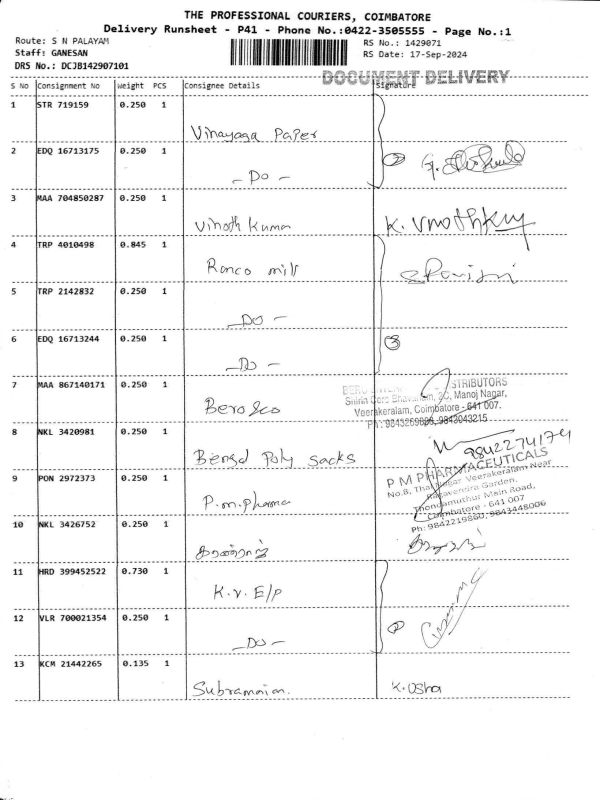 THE PROFESSIONAL COURIERS, COIMBATORE
Delivery Runsheet - P41 - Phone No.:0422-3505555 - Page No.:1
Route: S N PALAYAM
RS No.: 1429071
Staff: GANESAN
RS Date: 17-Sep-2024
DRS No.: DCJB142907101
DOCUMENT DELIVERY
S No Consignment No Weight PCS Consignee Details Signature
1 STR 719159 0.250 1
Vinayaga Paper
2 EDQ 16713175 0.250 1
2
- Do -
3 MAA 704850287 0.250 1
Vinoth Kumar K. Vinothkum
4 TRP 4010498 0.845 1
Ranco mill
5 TRP 2142832 0.250 1
- Do -
6 EDQ 16713244 0.250 1
3
- Do -
7 MAA 867140171 0.250 1
STRIBUTORS
Manoj Nagar,
Bero &co
Veerakeralam, Coimbatore - 641 007.
Ph: 9843043215
8 NKL 3420981 0.250 1
9842274174
Bengal Poly sacks
9 PON 2972373 0.250 1
P M PHARMACEUTICALS
Veerakeralam Near
No.8,
Ragavendra Garden,
P.m.pharma
Thondamuthur Main Road,
Coimbatore - 641 007
10 NKL 3426752 0.250 1
Ph: 9842219860, 9843448006
11 HRD 399452522 0.730 1
K.V. E/P
12 VLR 700021354 0.250 1
2
- Do -
13 KCM 21442265 0.135 1
Subramaian. K. Usha